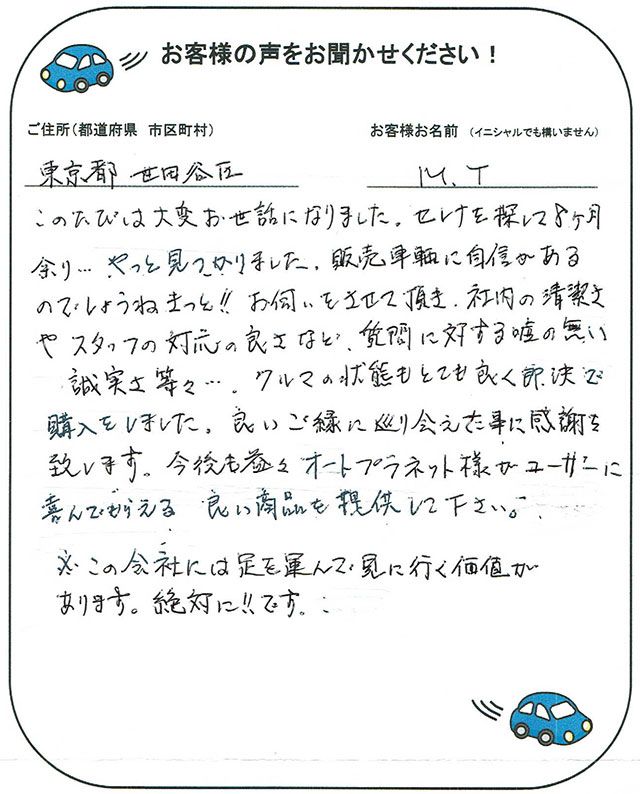 お客様の声をお聞かせください！
ご住所（都道府県　市区町村）
お客様お名前（イニシャルでも構いません）
東京都 世田谷区
M.T
このたびは大変お世話になりました。セレナを探して8ヶ月
余り…やっと見つかりました。販売車輌に自信がある
のでしょうねきっと!! お伺いをさせて頂き、社内の清潔さ
や スタッフの対応の良さなど、質問に対する嘘の無い
誠実さ等々…。クルマの状態もとても良く即決で
購入をしました。良いご縁に巡り会えた事に感謝を
致します。今後も益々オートプラネット様がユーザーに
喜んでもらえる 良い商品を提供して下さい。
※この会社には足を運んで見に行く価値が
あります。絶対に!!です。